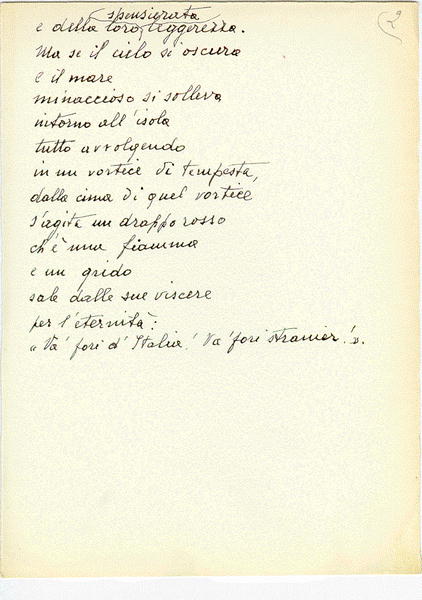 2
spensierata
e della loro leggerezza.
Ma se il cielo si oscura
e il mare
minaccioso si solleva
intorno all'isola
tutto avvolgendo
in un vortice di tempesta,
dalla cima di quel vortice
s'agita un drappo rosso
ch'è una fiamma
e un grido
sale dalle sue viscere
per l'eternità:
"Va' fori d'Italia! Va' fori stranier!".